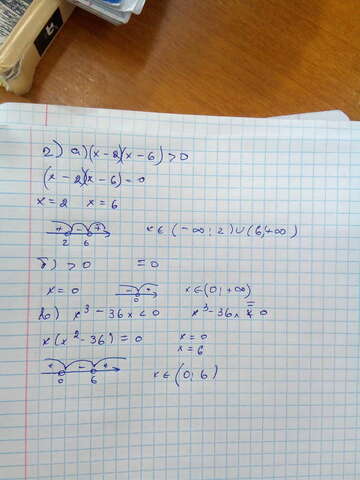 2) а) (x - 2)(x - 6) > 0
(x - 2)(x - 6) = 0
x = 2 x = 6
+ - +
2 6
x ∈ (-∞; 2) ∪ (6; +∞)
б) > 0 = 0
x = 0
- +
0
x ∈ (0; +∞)
в) x³ - 36x < 0 x³ - 36x = 0
x(x² - 36) = 0 x = 0
x = 6
+ - +
0 6
x ∈ (0; 6)